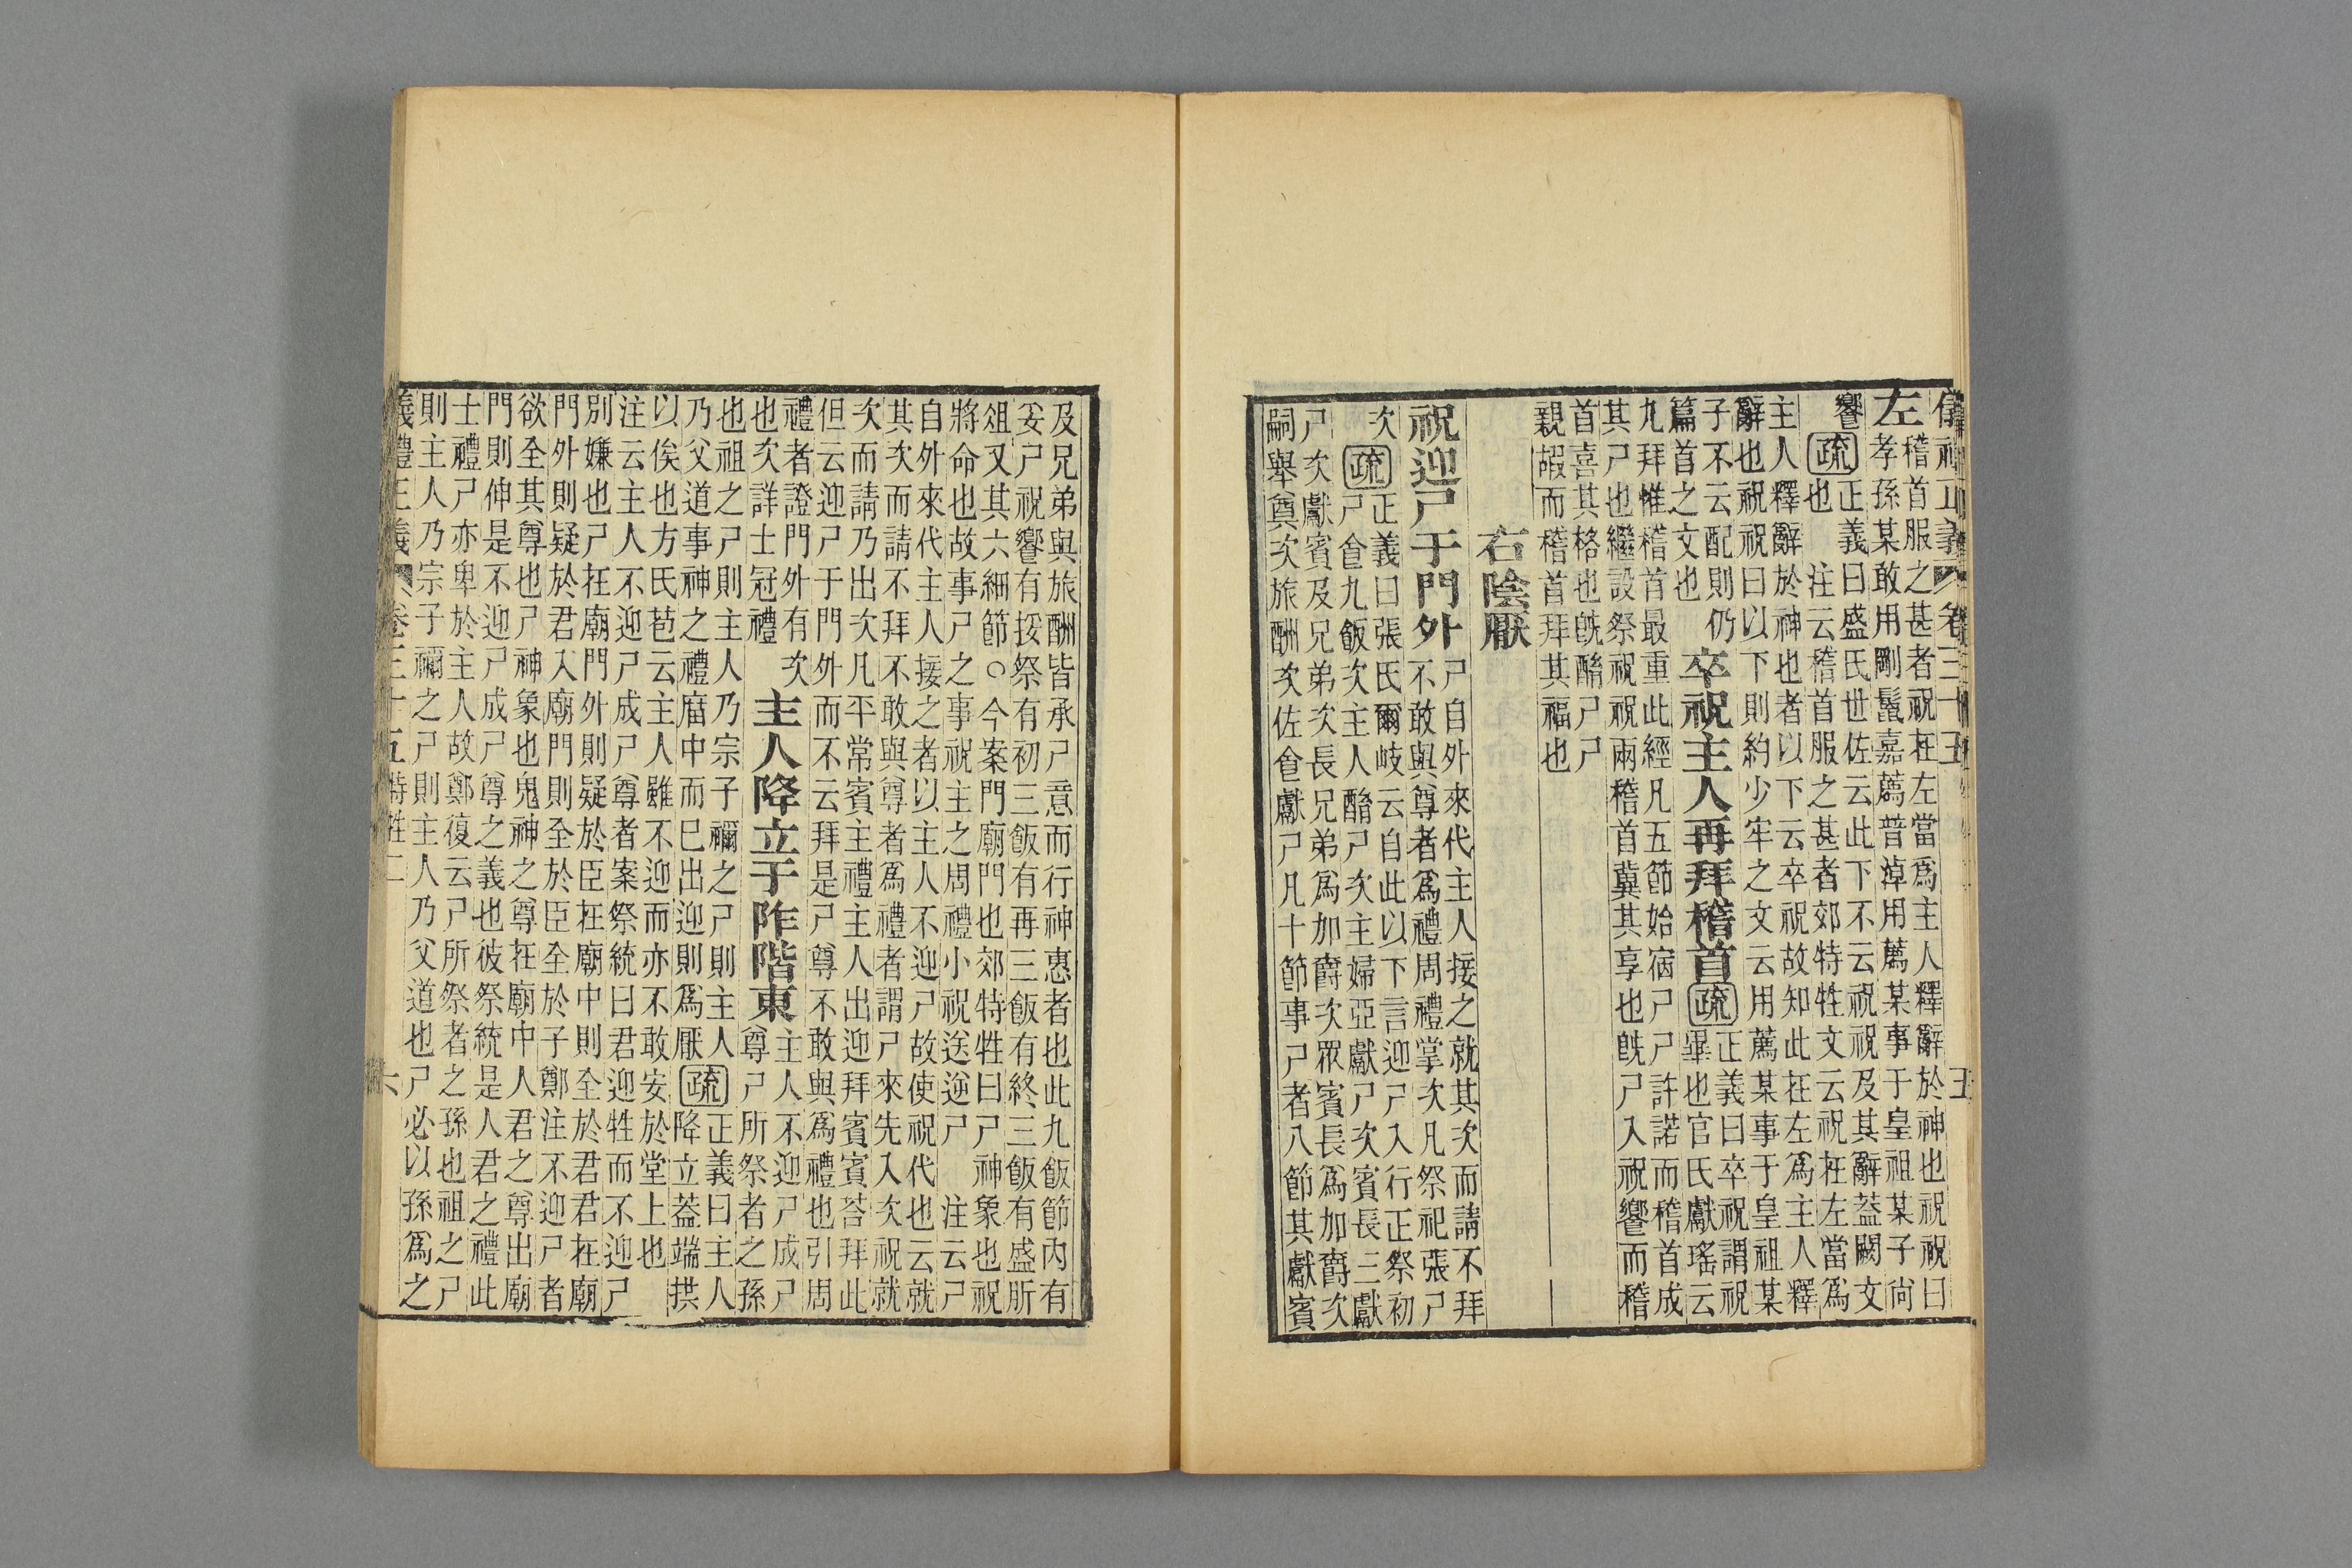 儀禮正義 卷三十五 五
左
稽首服之甚者祝在左當爲主人釋辭於神也祝祝曰
孝孫某敢用剛鬣嘉薦普淖用薦某事于皇祖某子尚
饗 疏 正義曰盛氏世佐云此下不云祝祝及其辭蓋闕文
也 注云稽首服之甚者郊特牲文云祝在左當爲
主人釋辭於神也者以下云卒祝故知此在左爲主人釋
辭也祝祝曰以下則約少牢之文云用薦某事于皇祖某
子不云配則仍
篇首之文也
卒祝主人再拜稽首 疏
正義曰卒祝謂祝
畢也官氏獻瑤云
九拜惟稽首最重此經凡五節始宿尸尸許諾而稽首成
其尸也繼設祭祝祝兩稽首冀其享也旣尸入祝饗而稽
首喜其格也旣酳尸尸
親嘏而稽首拜其福也
右陰厭
祝迎尸于門外
尸自外來代主人接之就其次而請不拜
不敢與尊者爲禮周禮掌次凡祭祀張尸
次 疏 正義曰張氏爾岐云自此以下言迎尸入行正祭初
尸食九飯次主人酳尸次主婦亞獻尸次賓長三獻
尸次獻賓及兄弟次長兄弟爲加爵次眾賓長爲加爵次
嗣舉奠次旅酬次佐食獻尸凡十節事尸者八節其獻賓
及兄弟與旅酬皆承尸意而行神惠者也此九飯節內有
妥尸祝饗有挼祭有初三飯有再三飯有終三飯有盛肵
俎又其六細節○今案門廟門也郊特牲曰尸神象也祝
將命也故事尸之事祝主之周禮小祝送逆尸 注云尸
自外來代主人接之者以主人不迎尸故使祝代也云就
其次而請不拜不敢與尊者爲禮者謂尸來先入次祝就
次而請乃出次凡平常賓主禮主人出迎拜賓賓荅拜此
但云迎尸于門外而不云拜是尸尊不敢與爲禮也引周
禮者證門外有次
也次詳士冠禮
主人降立于阼階東
主人不迎尸成尸
尊尸所祭者之孫
也祖之尸則主人乃宗子禰之尸則主人
乃父道事神之禮庿中而巳出迎則爲厭
疏
正義曰主人
降立蓋端拱
以俟也方氏苞云主人雖不迎而亦不敢安於堂上也
注云主人不迎尸成尸尊者案祭統曰君迎牲而不迎尸
別嫌也尸在廟門外則疑於臣在廟中則全於君君在廟
門外則疑於君入廟門則全於臣全於子鄭注不迎尸者
欲全其尊也尸神象也鬼神之尊在廟中人君之尊出廟
門則伸是不迎尸成尸尊之義也彼祭統是人君之禮此
士禮尸亦卑於主人故鄭復云尸所祭者之孫也祖之尸
則主人乃宗子禰之尸則主人乃父道也尸必以孫爲之
義禮正義 卷三十五 特牲二 六